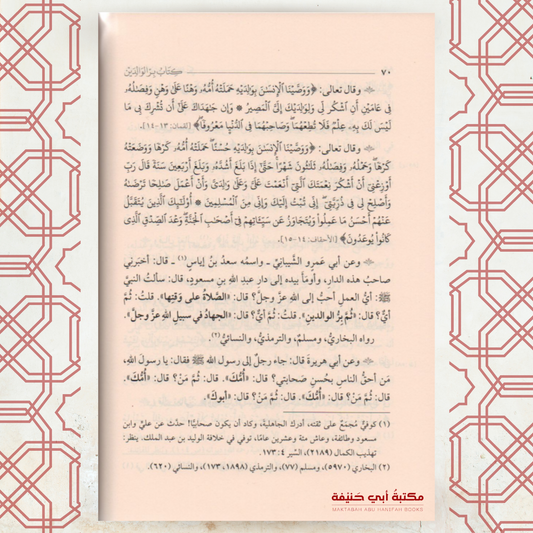 ٧٠ كتاب بر الوالدين
وقال تعالى: ﴿وَوَصَّيْنَا الْإِنسَانَ بِوَالِدَيْهِ حَمَلَتْهُ أُمُّهُ وَهْنًا عَلَىٰ وَهْنٍ وَفِصَالُهُ
فِي عَامَيْنِ أَنِ اشْكُرْ لِي وَلِوَالِدَيْكَ إِلَيَّ الْمَصِيرُ ۞ وَإِن جَاهَدَاكَ عَلَىٰ أَن تُشْرِكَ بِي مَا
لَيْسَ لَكَ بِهِ عِلْمٌ فَلَا تُطِعْهُمَا وَصَاحِبْهُمَا فِي الدُّنْيَا مَعْرُوفًا﴾ [لقمان: ١٣-١٥].
وقال تعالى: ﴿وَوَصَّيْنَا الْإِنسَانَ بِوَالِدَيْهِ حُسْنًا حَمَلَتْهُ أُمُّهُ كُرْهًا وَوَضَعَتْهُ
كُرْهًا وَحَمْلُهُ وَفِصَالُهُ ثَلَاثُونَ شَهْرًا حَتَّىٰ إِذَا بَلَغَ أَشُدَّهُ وَبَلَغَ أَرْبَعِينَ سَنَةً قَالَ رَبِّ
أَوْزِعْنِي أَنْ أَشْكُرَ نِعْمَتَكَ الَّتِي أَنْعَمْتَ عَلَيَّ وَعَلَىٰ وَالِدَيَّ وَأَنْ أَعْمَلَ صَالِحًا تَرْضَاهُ
وَأَصْلِحْ لِي فِي ذُرِّيَّتِي إِنِّي تُبْتُ إِلَيْكَ وَإِنِّي مِنَ الْمُسْلِمِينَ ۞ أُولَٰئِكَ الَّذِينَ يُتَقَبَّلُ
عَنْهُمْ أَحْسَنُ مَا عَمِلُوا وَيُتَجَاوَزُ عَن سَيِّئَاتِهِمْ فِي أَصْحَابِ الْجَنَّةِ وَعْدَ الصِّدْقِ الَّذِي
كَانُوا يُوعَدُونَ﴾ [الأحقاف: ١٤-١٥].
وعن أبي عمرو الشيباني ـ واسمه سعدُ بنُ إياس(١) ـ قال: أخبرني
صاحبُ هذه الدارِ، وأومأ بيده إلى دار عبد الله بنِ مسعودٍ، قال: سألتُ النبيَّ
ﷺ: أيُّ العملِ أحبُّ إلى الله عزَّ وجلَّ؟ قال: «الصَّلاةُ على وَقتِها». قلتُ: ثُمَّ
أيٌّ؟ قال: «ثُمَّ بِرُّ الوالدينِ». قلتُ: ثُمَّ أيٌّ؟ قال: «الجهادُ في سبيلِ اللهِ عزَّ وجلَّ».
رواه البخاريُّ، ومسلمٌ، والترمذيُّ، والنسائيُّ(٢).
وعن أبي هريرةَ قال: جاء رجلٌ إلى رسول الله ﷺ فقال: يا رسولَ اللهِ،
مَن أحقُّ الناسِ بحُسنِ صَحابتي؟ قال: «أُمُّكَ». قال: ثُمَّ مَنْ؟ قال: «أُمُّكَ».
قال: ثُمَّ مَنْ؟ قال: «أُمُّكَ». قال: ثُمَّ مَنْ؟ قال: «أبوكَ».
(١) كوفيٌّ مُجمَعٌ على ثقته، أدرك الجاهلية، وكاد أن يكون صحابيًّا! حدَّث عن عليٍّ وابن
مسعود وطائفة، وعاش مئة وعشرين عامًا، توفي في خلافة الوليد بن عبد الملك. ينظر:
تهذيب الكمال (٢١٨٩)، السِّيَر ٤: ١٧٣.
(٢) البخاري (٥٩٧٠)، ومسلم (٧٧)، والترمذي (١٧٣، ١٨٩٨)، والنسائي (٦٢٠).
مكتبة أبي حنيفة
MAKTABAH ABU HANIFAH BOOKS